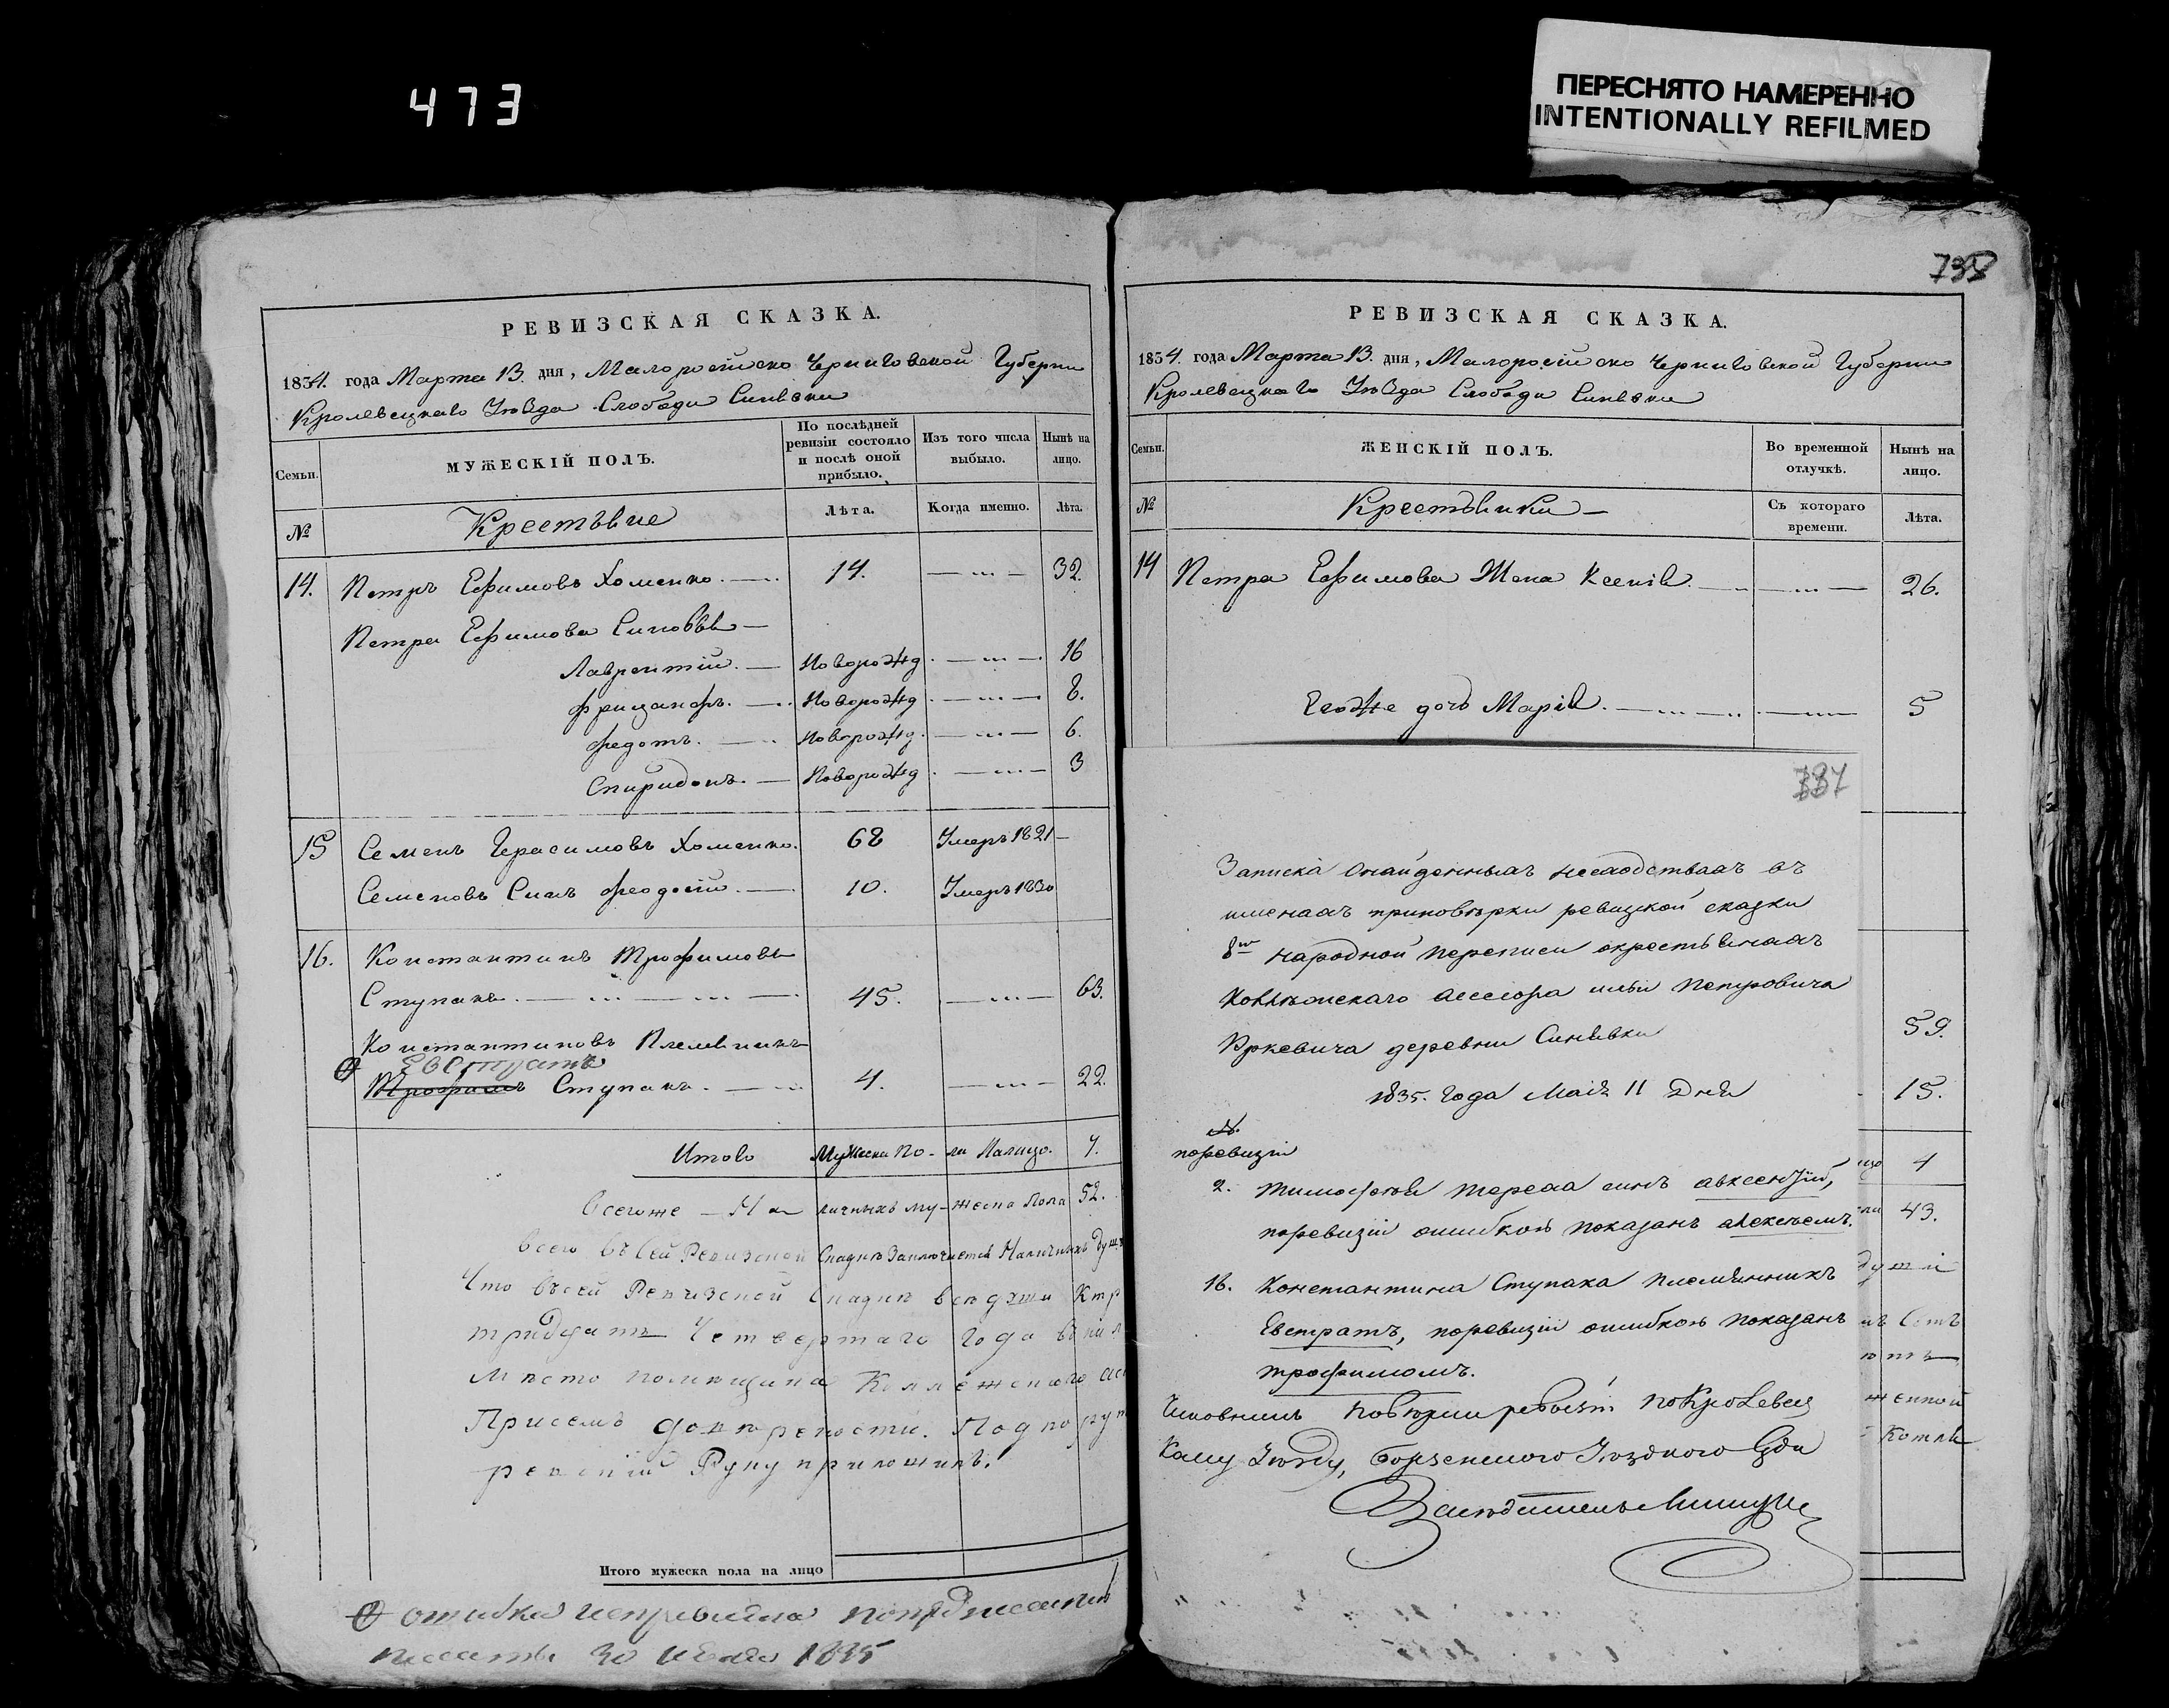 473
ПЕРЕСНЯТО НАМЕРЕННО
INTENTIONALLY REFILMED
738
РЕВИЗСКАЯ СКАЗКА.
1834. года Марта 13. дня, Малоросійско Черниговской Губерни
Кролевецкаго Уѣзда Слободи Синявки
Семьи.
МУЖЕСКІЙ ПОЛЪ.
По послѣдней ревизіи состояло и послѣ оной прибыло.
Изъ того числа выбыло.
Нынѣ на лицо.
№
Крестьяне
Лѣта.
Когда именно.
Лѣта.
14. Петръ Ефимовъ Хоменко. 14. 32.
Петра Ефимова Синовья
Лаврентій. Новорожд. 16
Новорожд. 8.
Федотъ. Новорожд. 6.
Спиридонъ. Новорожд. 3
15 Семенъ Герасимовъ Хоменко. 68 Умеръ 1821
Семеновъ Синъ Феодосій. 10. Умеръ 1830
16. Константинъ Трофимовъ
Ступакъ. 45. 63.
Константиновъ Племяникъ
Евстратъ
Трофимъ Ступакъ. 4. 22.
Итого Мужеска По-ла Налицо. 7.
Всегоже На личныхъ му-жеска Пола 52.
Всего въ Сей Ревизской Сказкѣ Заключается Наличныхъ душъ
Что въ сей Ревизской Сказкѣ всѣ души
тридцать Четвертаго Года
Мѣсто помѣщика Коллежского
Руку приложилъ.
Итого мужеска пола на лицо
ошибка исправлена
30 1835
РЕВИЗСКАЯ СКАЗКА.
1834. года Марта 13. дня, Малоросійско Черниговской Губерни
Кролевецкаго Уѣзда Слободи Синявки
Семьи.
ЖЕНСКІЙ ПОЛЪ.
Во временной отлучкѣ.
Нынѣ на лицо.
№
Крестьянки
Съ котораго времени.
Лѣта.
14 Петра Ефимова Жена Ксенія. 26.
Егоже дочь Марія. 5
59.
15.
4
43.
737
Записка онайденныхъ несходствахъ въ
именахъ приповѣрки ревизкой сказки
8й народной переписи окрестьянахъ
Коллежскаго асессора ильи Петровича
Юркевича деревни Синявки
1835. Года Маія 11 Дня
№.
поревизіи
2. Тимофея Тереха синъ авксентій,
поревизіи ошибкою показанъ алексѣемъ.
16. Константина Ступака племянникъ
Евстратъ, поревизіи ошибкою показанъ
трофимомъ.
Чиновникъ Повѣрки ревизіи по Кролевец
кому Уѣзду, Борзенского Уѣздного Суда
Засѣдатель